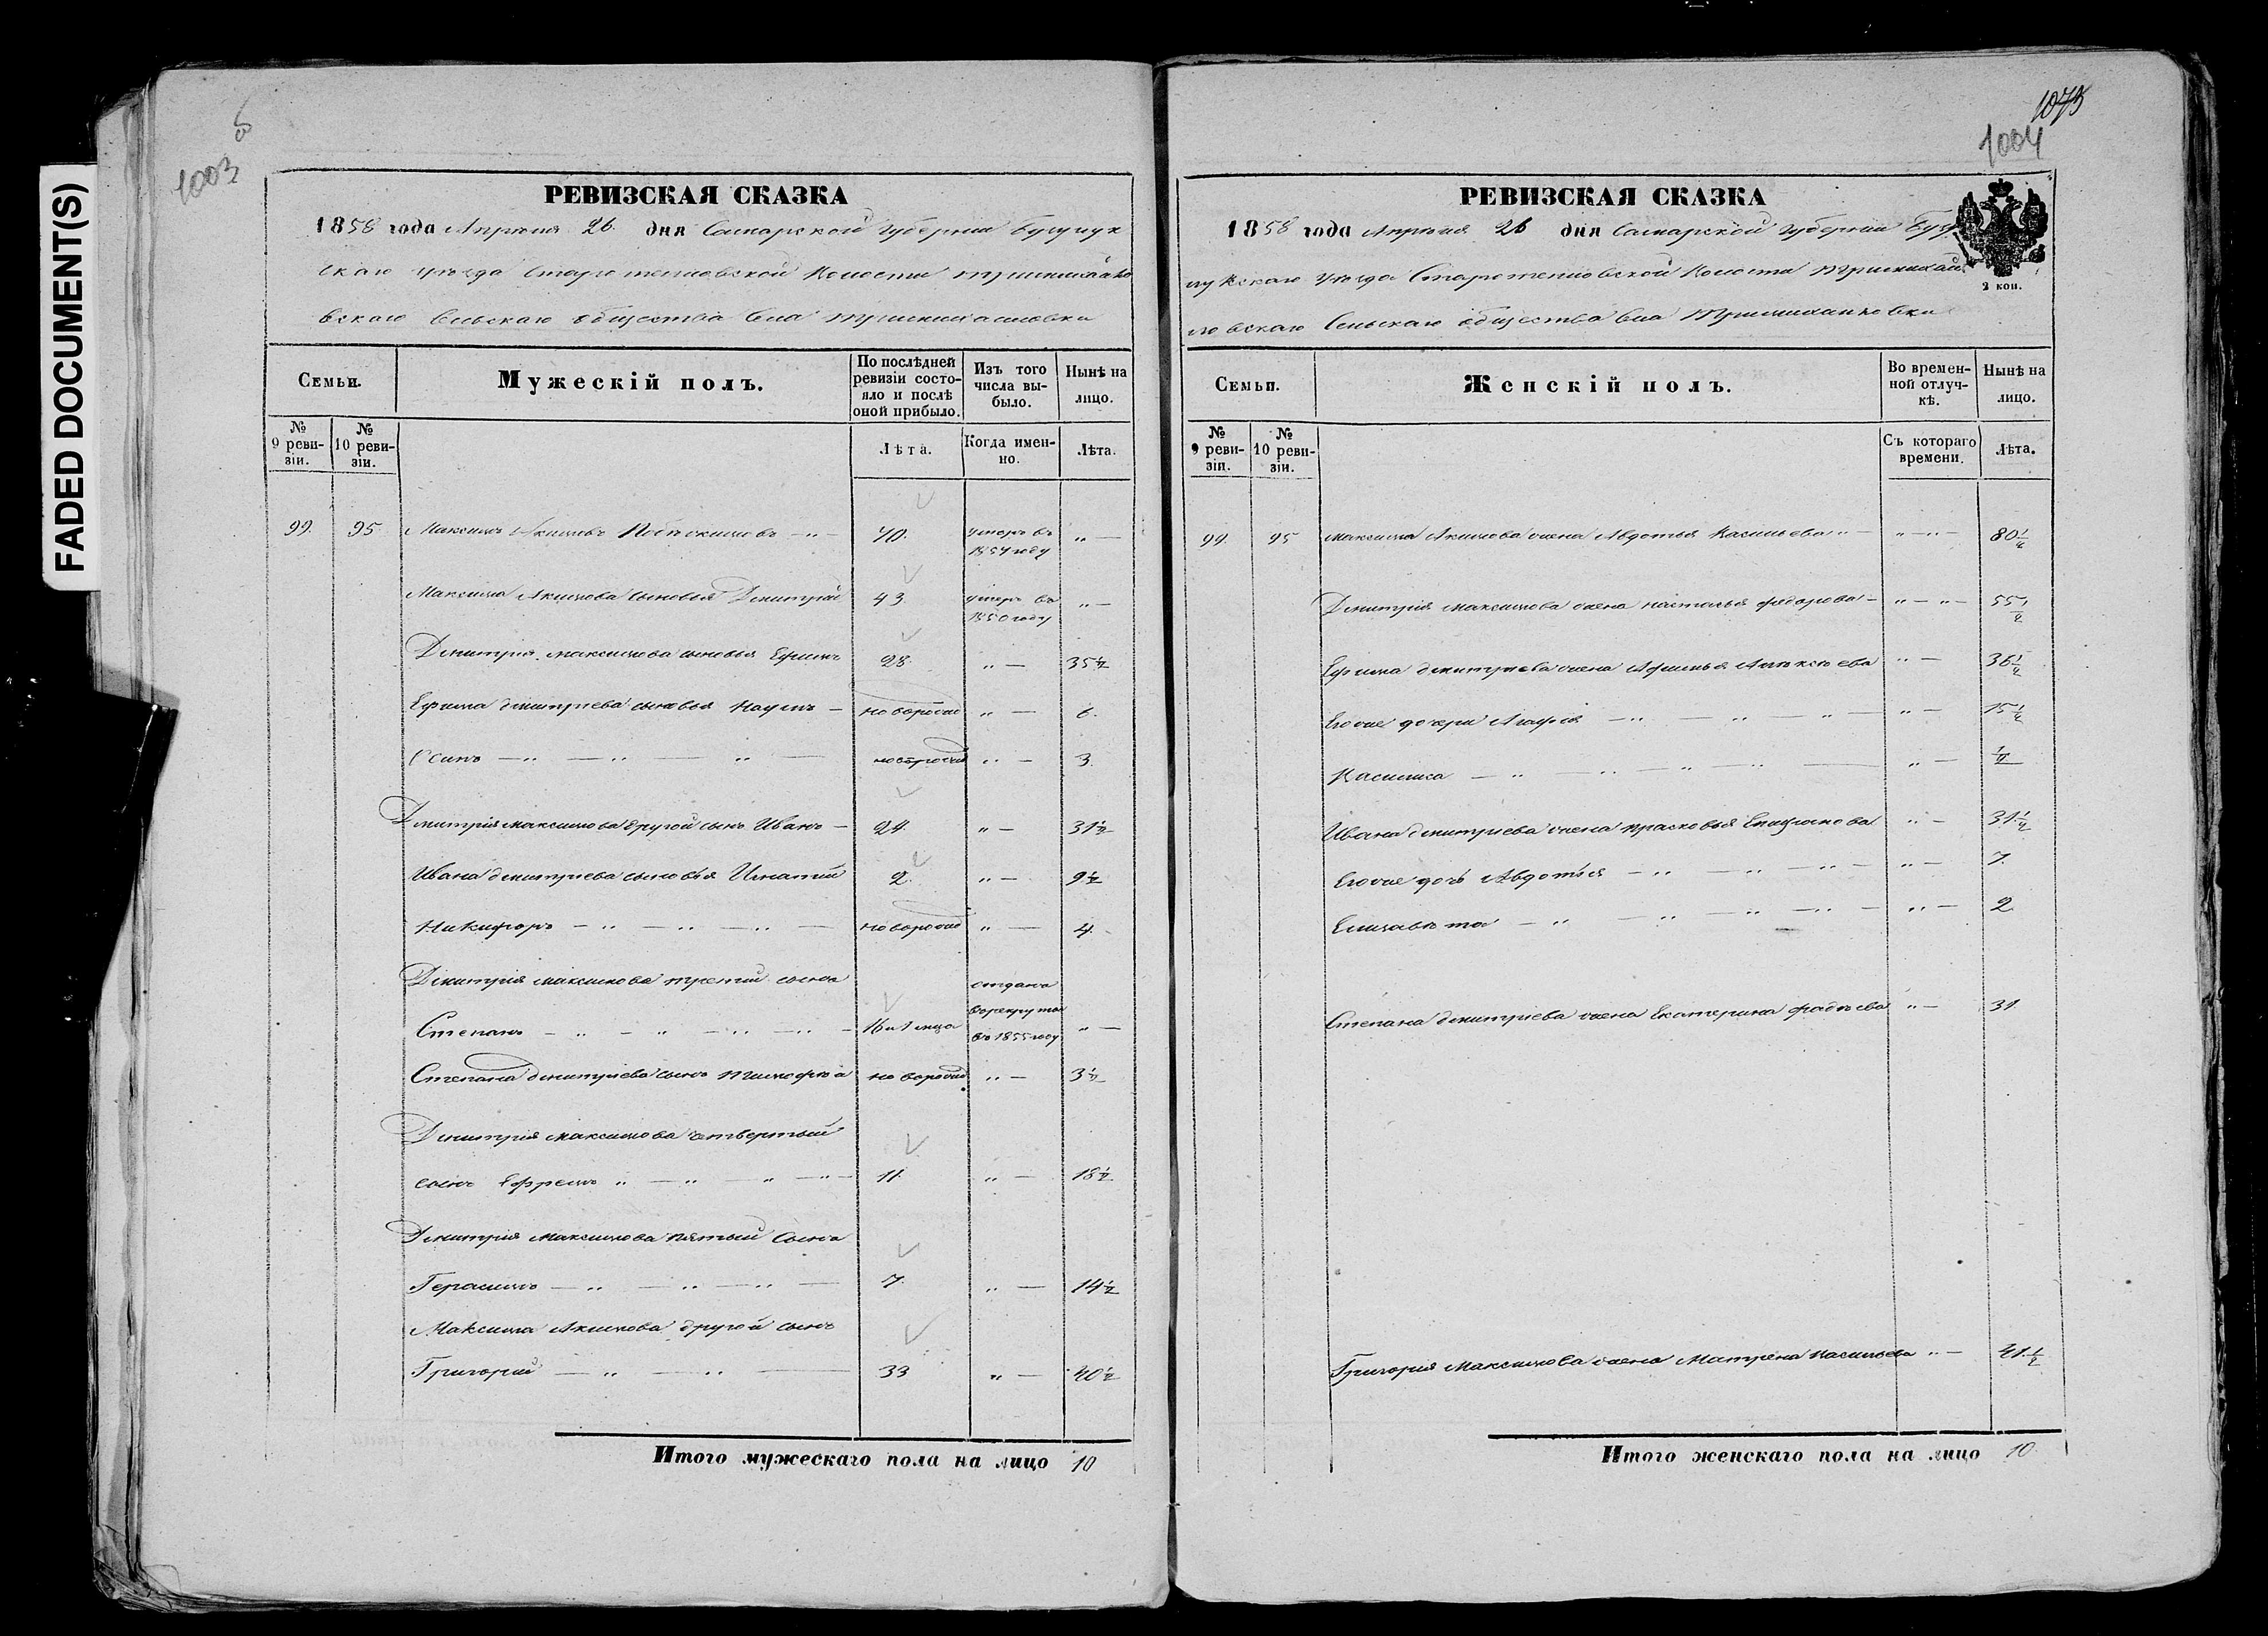 FADED DOCUMENT(S)
1003
РЕВИЗСКАЯ СКАЗКА
1858 года Апрѣля 26. дня Самарской Губерніи Бузулук
скаго уѣзда Старотепловской Волости
вскаго Сельскаго общества
Семьи.
Мужескій полъ.
По послѣдней ревизіи состояло и послѣ оной прибыло.
Изъ того числа выбыло.
Нынѣ на лицо.
№ 9 ревизіи.
№ 10 ревизіи.
Лѣта.
Когда именно.
Лѣта.
99. 95 Максимъ Акимовъ 70. умеръ въ 1854 году „ —
Максима Акимова сыновья Дмитрій 43. умеръ въ 1850 году „ —
Дмитрія Максимова сыновья Ефимъ 28. „ — 35 1/2
Ефима Дмитріева сыновья Наумъ — новорожд „ — 6.
Осипъ — „ — „ — „ — новорожд „ — 3.
Дмитрія Максимова другой сынъ Иванъ — 24. „ — 31 1/2
Ивана Дмитріева сыновья Игнатій 2. „ — 9 1/2
Никифоръ — „ — „ — „ — новорожд „ — 4.
Дмитрія Максимова третій сынъ
Степанъ — „ — „ — „ — „ — 16 и 1 мца отданъ в рекруты въ 1855 году „ —
Степана Дмитріева сынъ Тимофѣй новорожд „ — 3 1/2
Дмитрія Максимова четвертый
сынъ Ефремъ „ — „ — „ — „ — 11. „ — 18 1/2
Дмитрія Максимова пятый сынъ
Герасимъ — „ — „ — „ — 7. „ — 14 1/2
Максима Акимова другой сынъ
Григорій — „ — „ — 33 „ — 40 1/2
Итого мужескаго пола на лицо 10
1004
РЕВИЗСКАЯ СКАЗКА
1858 года Апрѣля 26 дня Самарской Губерніи Бузу
лукскаго уѣзда Старотепловской Волости
вскаго Сельскаго общества
2 коп.
Семьи.
Женскій полъ.
Во временной отлучкѣ.
Нынѣ на лицо.
№ 9 ревизіи.
№ 10 ревизіи.
Съ котораго времени.
Лѣта.
99. 95 Максима Акимова жена Авдотья Васильева „ — „ — „ — 80 1/2
Дмитрія Максимова жена Настасья Федорова — „ — „ — 55 1/2
Ефима Дмитріева жена Афимья Алексѣева „ — 36 1/2
Его же дочери Агафья — „ — „ — „ — „ — 15 1/2
Василиса — „ — „ — „ — „ — „ — 1/2
Ивана Дмитріева жена Прасковья Епифанова „ — 31 1/2
Его же дочь Авдотья — „ — „ — „ — „ — 7.
Елизавѣта — „ — „ — „ — „ — „ — 2.
Степана Дмитріева жена Екатерина Фадѣева „ — 31
Григорія Максимова жена Матрена Васильева „ — 41 1/2
Итого женскаго пола на лицо 10.